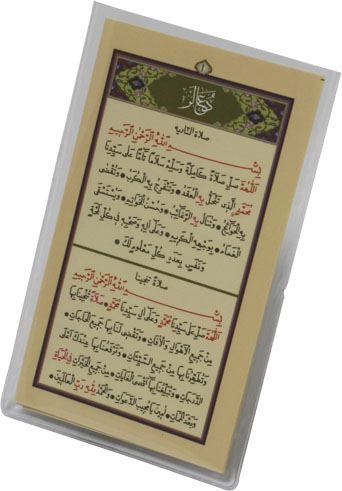 ١
دعالر
صلاة النارية
بِسْمِ اللهِ الرَّحْمٰنِ الرَّحِيمِ
اَللّٰهُمَّ صَلِّ صَلَاةً كَامِلَةً وَسَلِّمْ سَلَامًا تَامًّا عَلٰى سَيِّدِنَا
مُحَمَّدٍ الَّذِى تَنْحَلُّ بِهِ الْعُقَدُ وَتَنْفَرِجُ بِهِ الْكُرَبُ وَتُقْضٰى
بِهِ الْحَوَائِجُ وَتُنَالُ بِهِ الرَّغَائِبُ وَحُسْنُ الْخَوَاتِمِ وَيُسْتَسْقَى
الْغَمَامُ بِوَجْهِهِ الْكَرِيمِ وَعَلٰى اٰلِهِ وَصَحْبِهِ فِى كُلِّ لَمْحَةٍ
وَنَفَسٍ بِعَدَدِ كُلِّ مَعْلُومٍ لَكَ
صلاة تنجينا
بِسْمِ اللهِ الرَّحْمٰنِ الرَّحِيمِ
اَللّٰهُمَّ صَلِّ عَلٰى سَيِّدِنَا مُحَمَّدٍ وَعَلٰى اٰلِ سَيِّدِنَا مُحَمَّدٍ صَلَاةً تُنْجِينَا بِهَا
مِنْ جَمِيعِ الْاَهْوَالِ وَالْاٰفَاتِ وَتَقْضِى لَنَا بِهَا جَمِيعَ الْحَاجَاتِ
وَتُطَهِّرُنَا بِهَا مِنْ جَمِيعِ السَّيِّئَاتِ وَتَرْفَعُنَا بِهَا عِنْدَكَ اَعْلَى
الدَّرَجَاتِ وَتُبَلِّغُنَا بِهَا اَقْصَى الْغَايَاتِ مِنْ جَمِيعِ الْخَيْرَاتِ فِى الْحَيَاةِ
وَبَعْدَ الْمَمَاتِ اٰمِينَ يَا مُجِيبَ الدَّعَوَاتِ وَالْحَمْدُ لِلّٰهِ رَبِّ الْعَالَمِينَ